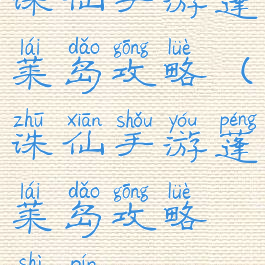 诛仙手游蓬
lái dǎo gōng lüè
莱岛攻略（
zhū xiān shǒu yóu péng
诛仙手游蓬
lái dǎo gōng lüè
莱岛攻略
shì pín